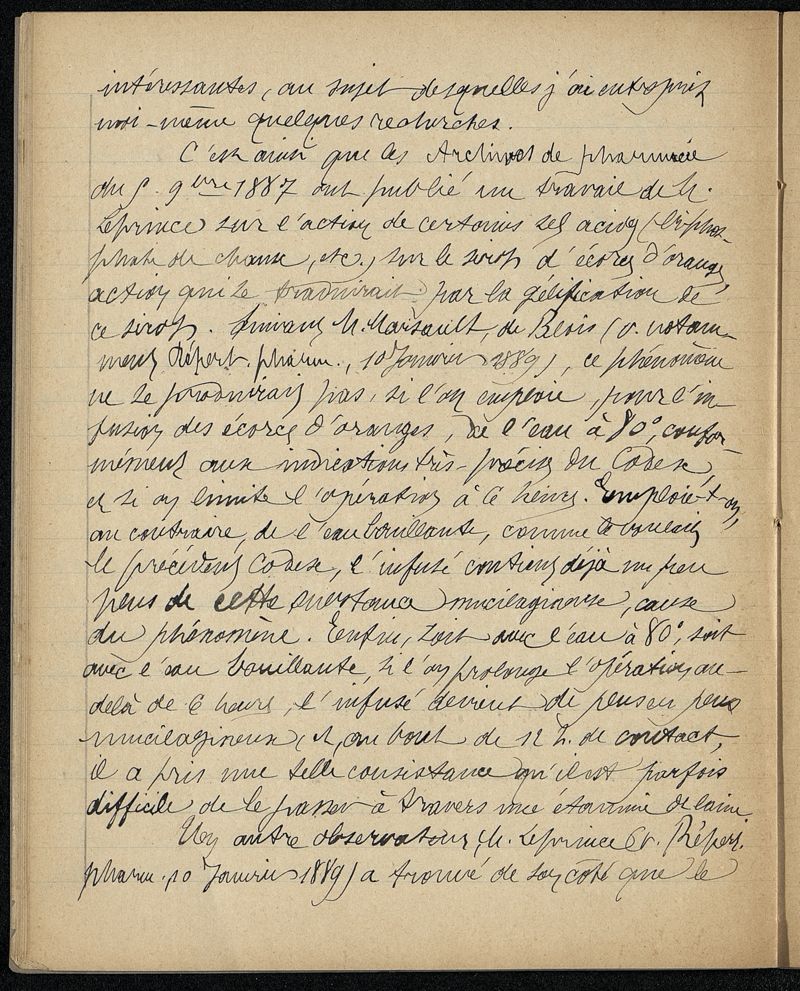 intéressantes, au sujet desquelles j'ai entrepris
moi-même quelques recherches.
C'est ainsi que les Archives de pharmacie
du 5 9bre 1887 ont publié un travail de M.
Leprince sur l'action de certains sels acides (biphos-
phate de chaux, etc.) sur le sirop d'écorces d'oranges,
action qui se traduirait par la gélification de
ce sirop. Suivant M. Marsault, de Blois (v. notam-
ment Répert. pharm., 10 Janvier 1889), ce phénomène
ne se produirait pas, si l'on emploie, pour l'in-
fusion des écorces d'oranges, de l'eau à 80°, confor-
mément aux indications très-précises du Codex,
et si on limite l'opération à 6 heures. Emploie-t-on,
au contraire, de l'eau bouillante, comme le voulait
le précédent Codex, l'infusé contient déjà un peu
plus de cette substance mucilagineuse, cause
du phénomène. Enfin, soit avec l'eau à 80°, soit
avec l'eau bouillante, si l'on prolonge l'opération au-
delà de 6 heures, l'infusé devient de plus en plus
mucilagineux, et, au bout de 12 h. de contact,
il a pris une telle consistance qu'il est parfois
difficile de le passer à travers une étamine de laine.
Un autre observateur, M. Leprince (v. Répert.
pharm. 10 Janvier 1889) a trouvé de son côté que le